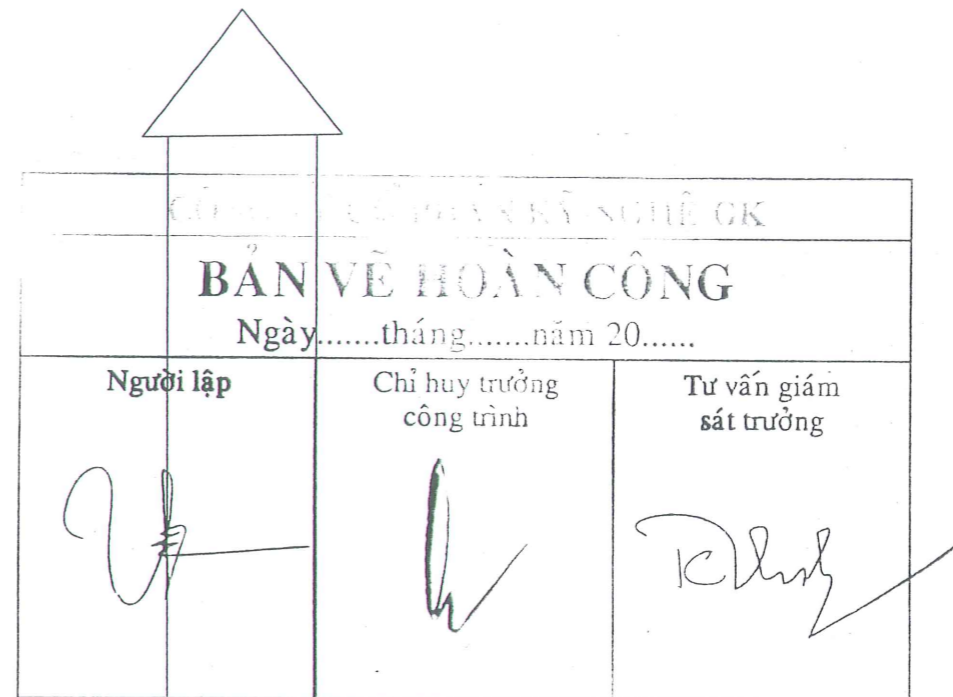 CÔNG TY CỔ PHẦN KỸ NGHỆ GK
BẢN VẼ HOÀN CÔNG
Ngày.......tháng.......năm 20......
Người lập
Chỉ huy trưởng
công trình
Tư vấn giám
sát trưởng